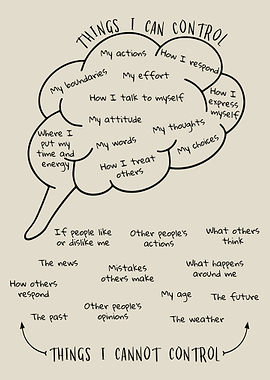 THINGS I CAN CONTROL
My actions
How I respond
My boundaries
My effort
How I talk to myself
How I
express
myself
My attitude
My thoughts
Where I
put my
time and
energy
My words
My choices
How I treat
others
If people like
or dislike me
Other people's
actions
What others
think
The news
Mistakes
others make
What happens
around me
How others
respond
My age
The future
Other people's
opinions
The past
The weather
THINGS I CANNOT CONTROL